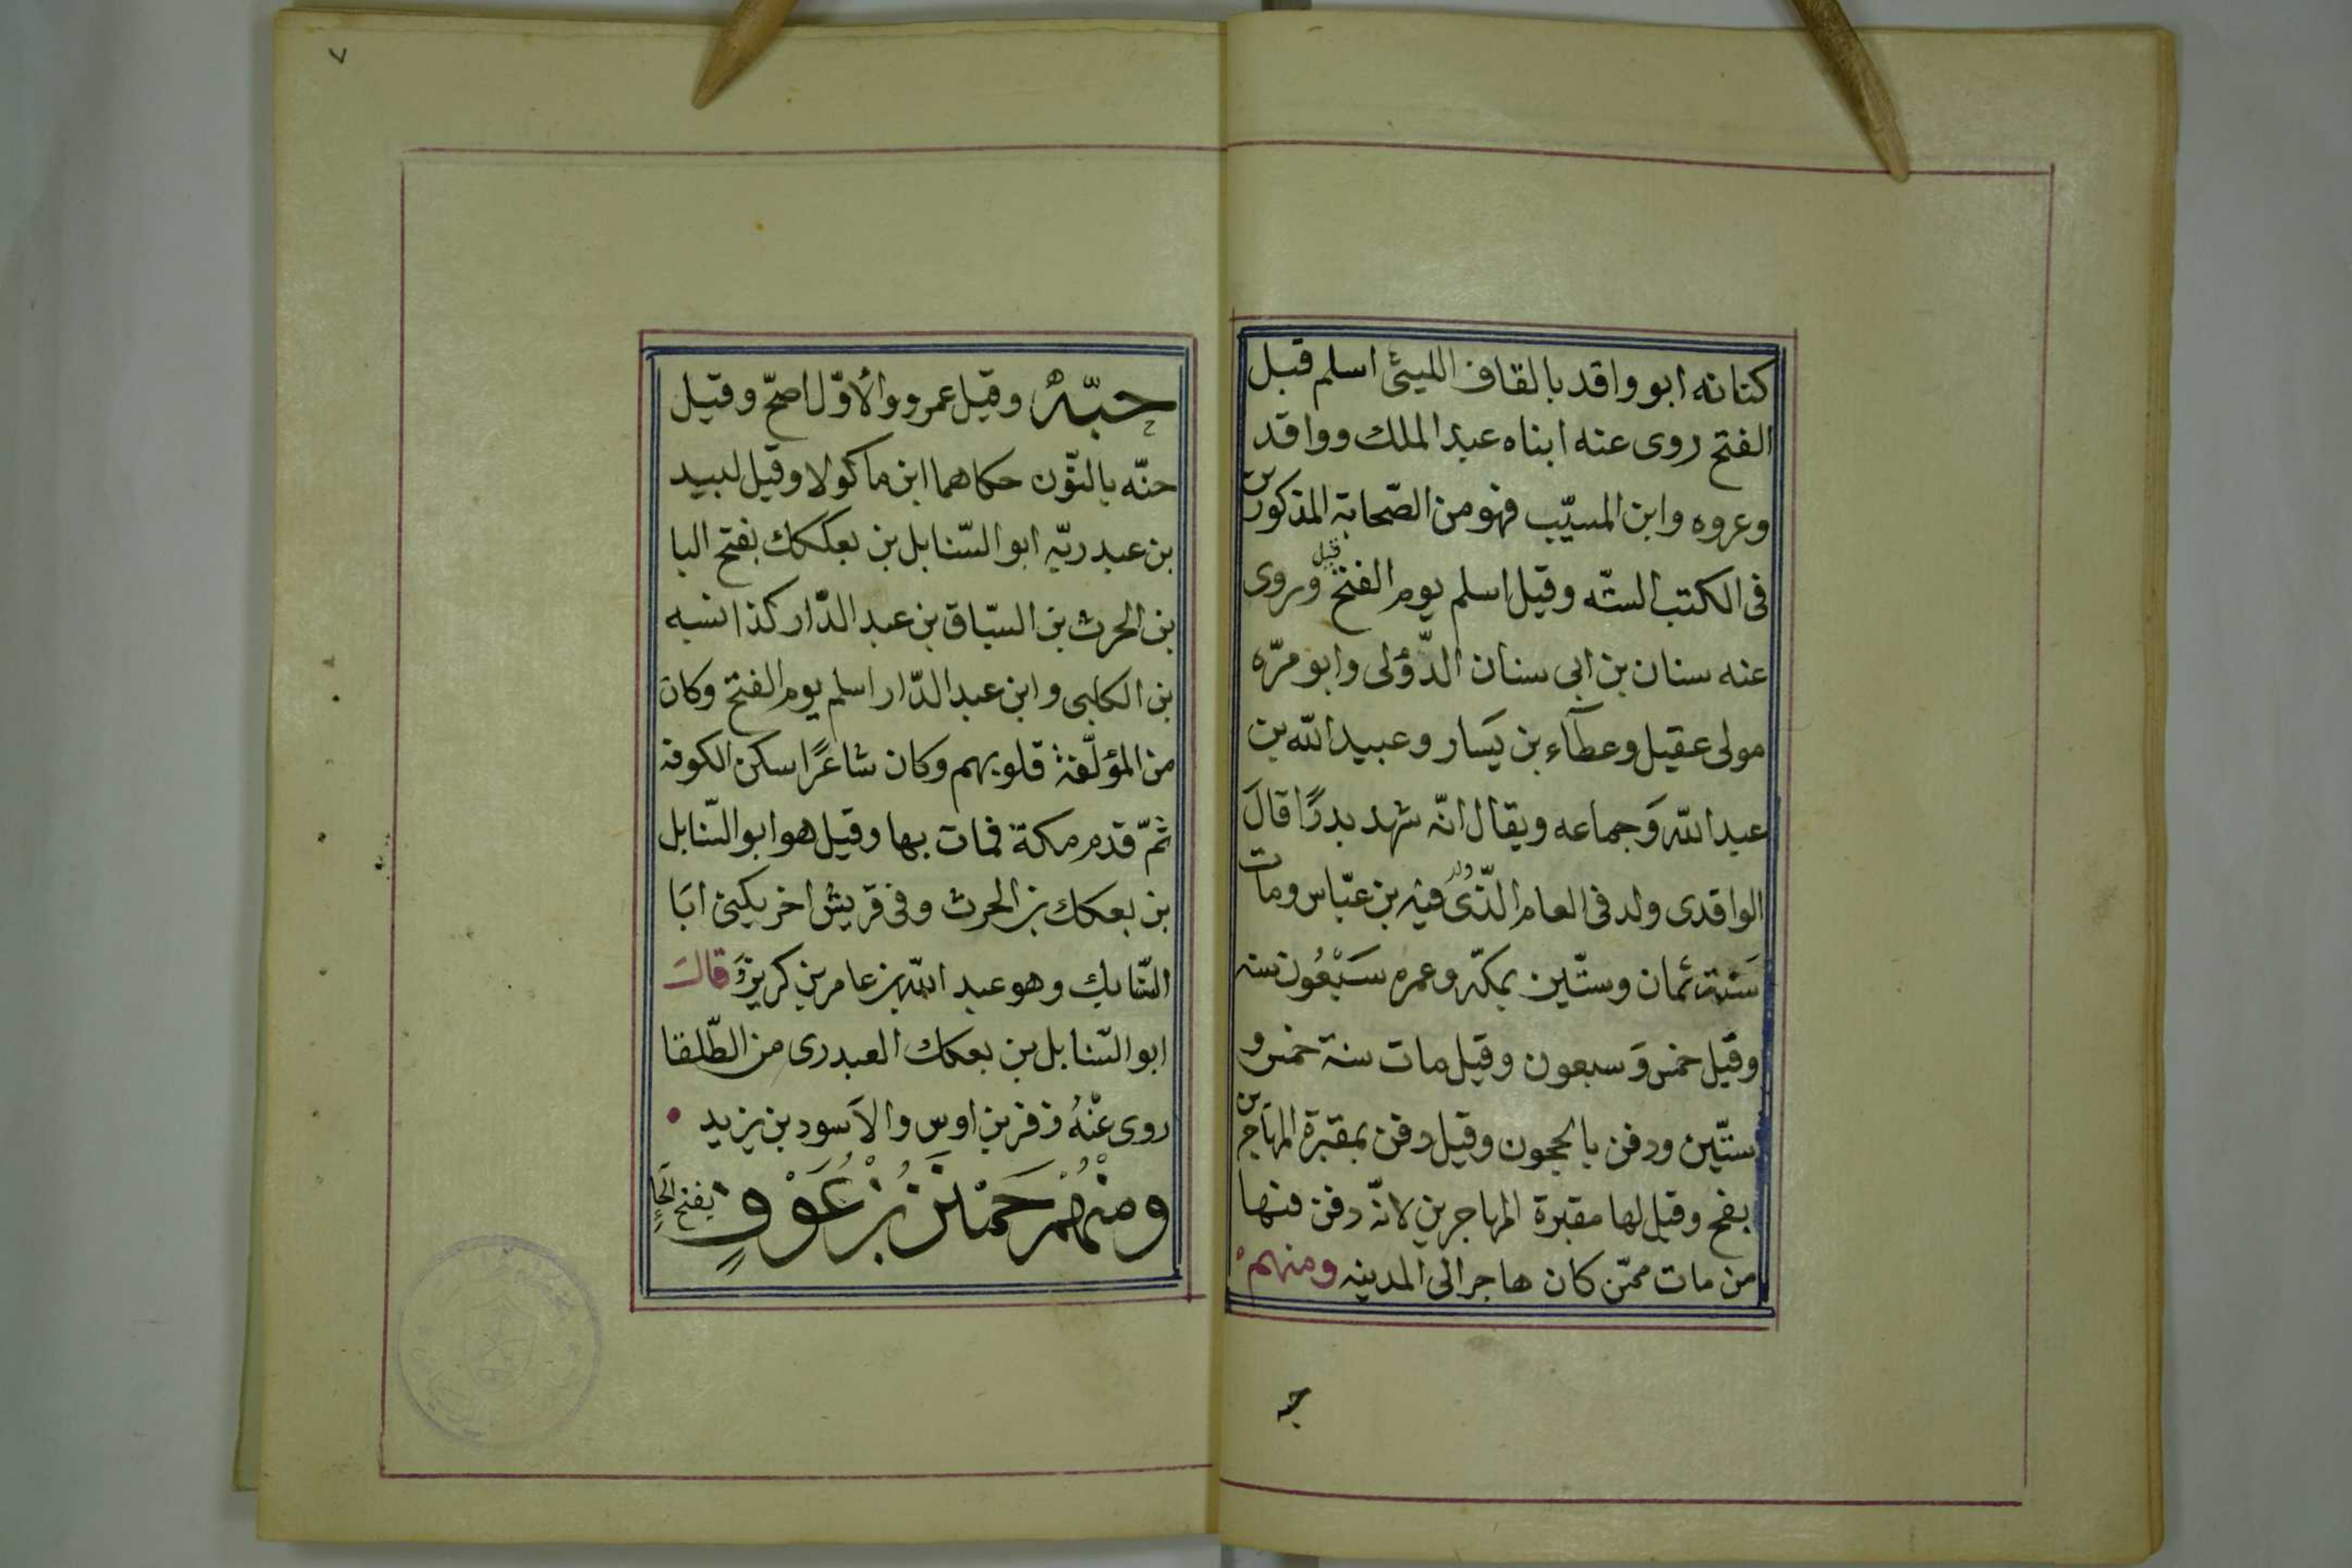 كنانه ابو واقد بالقاف الليثى اسلم قبل
الفتح روى عنه ابناه عبد الملك وواقد
وعروه وابن المسيّب فهو من الصّحابة المذكورين
فى الكتب الستّه وقيل اسلم يوم الفتح قبل وروى
عنه سنان بن ابى سنان الدّؤلى وابو مرّه
مولى عقيل وعطآء بن يَسار وعبيد الله بن
عبد الله وَجماعه ويقال انّه شهد بدرًا قالَ
الواقدى ولد فى العام الّذى ولد فيه بن عبّاس ومات
سَنة ثمان وستّين بمكّه وعمره سَبْعُون سنه
وقيل خمس وَسبعون وقيل مات سنة خمس و
ستّين ودفن بالحجون وقيل دفن بمقبرة المهاجرين
بفخ وقيل لها مقبرة المهاجرين لانّه دفن فيها
من مات ممّن كان هاجر الى المدينه ومنهم
حبّة
٧
حبّةُ وقيل عمرو والأوّل اصحّ وقيل
حنّه بالنّون حكاهما ابن ماكولا وقيل لبيد
بن عبد ربّه ابو السّنابل بن بعكك بفتح البا
بن الحرث بن السبّاق بن عبد الدّار كذا نسبه
بن الكلبى وابن عبد الدّار اسلم يوم الفتح وكان
من المؤلّفة قلوبهم وكان شاعرًا سكن الكوفة
ثمّ قدم مكة فمات بها وقيل هو ابو السّنابل
بن بعكك بن الحرث وفى قريش اخر يكنى ابَا
السّنابل وهو عبد الله بن عامر بن كريز وَقالَ
ابو السّنابل بن بعكك العبدرى من الطّلقا
روى عنْهُ زفر بن اوس والاَسود بن يزيد
ومِنْهُمْ حَمْنَنُ بْنُ عَوْفٍ بفتح الحَاء